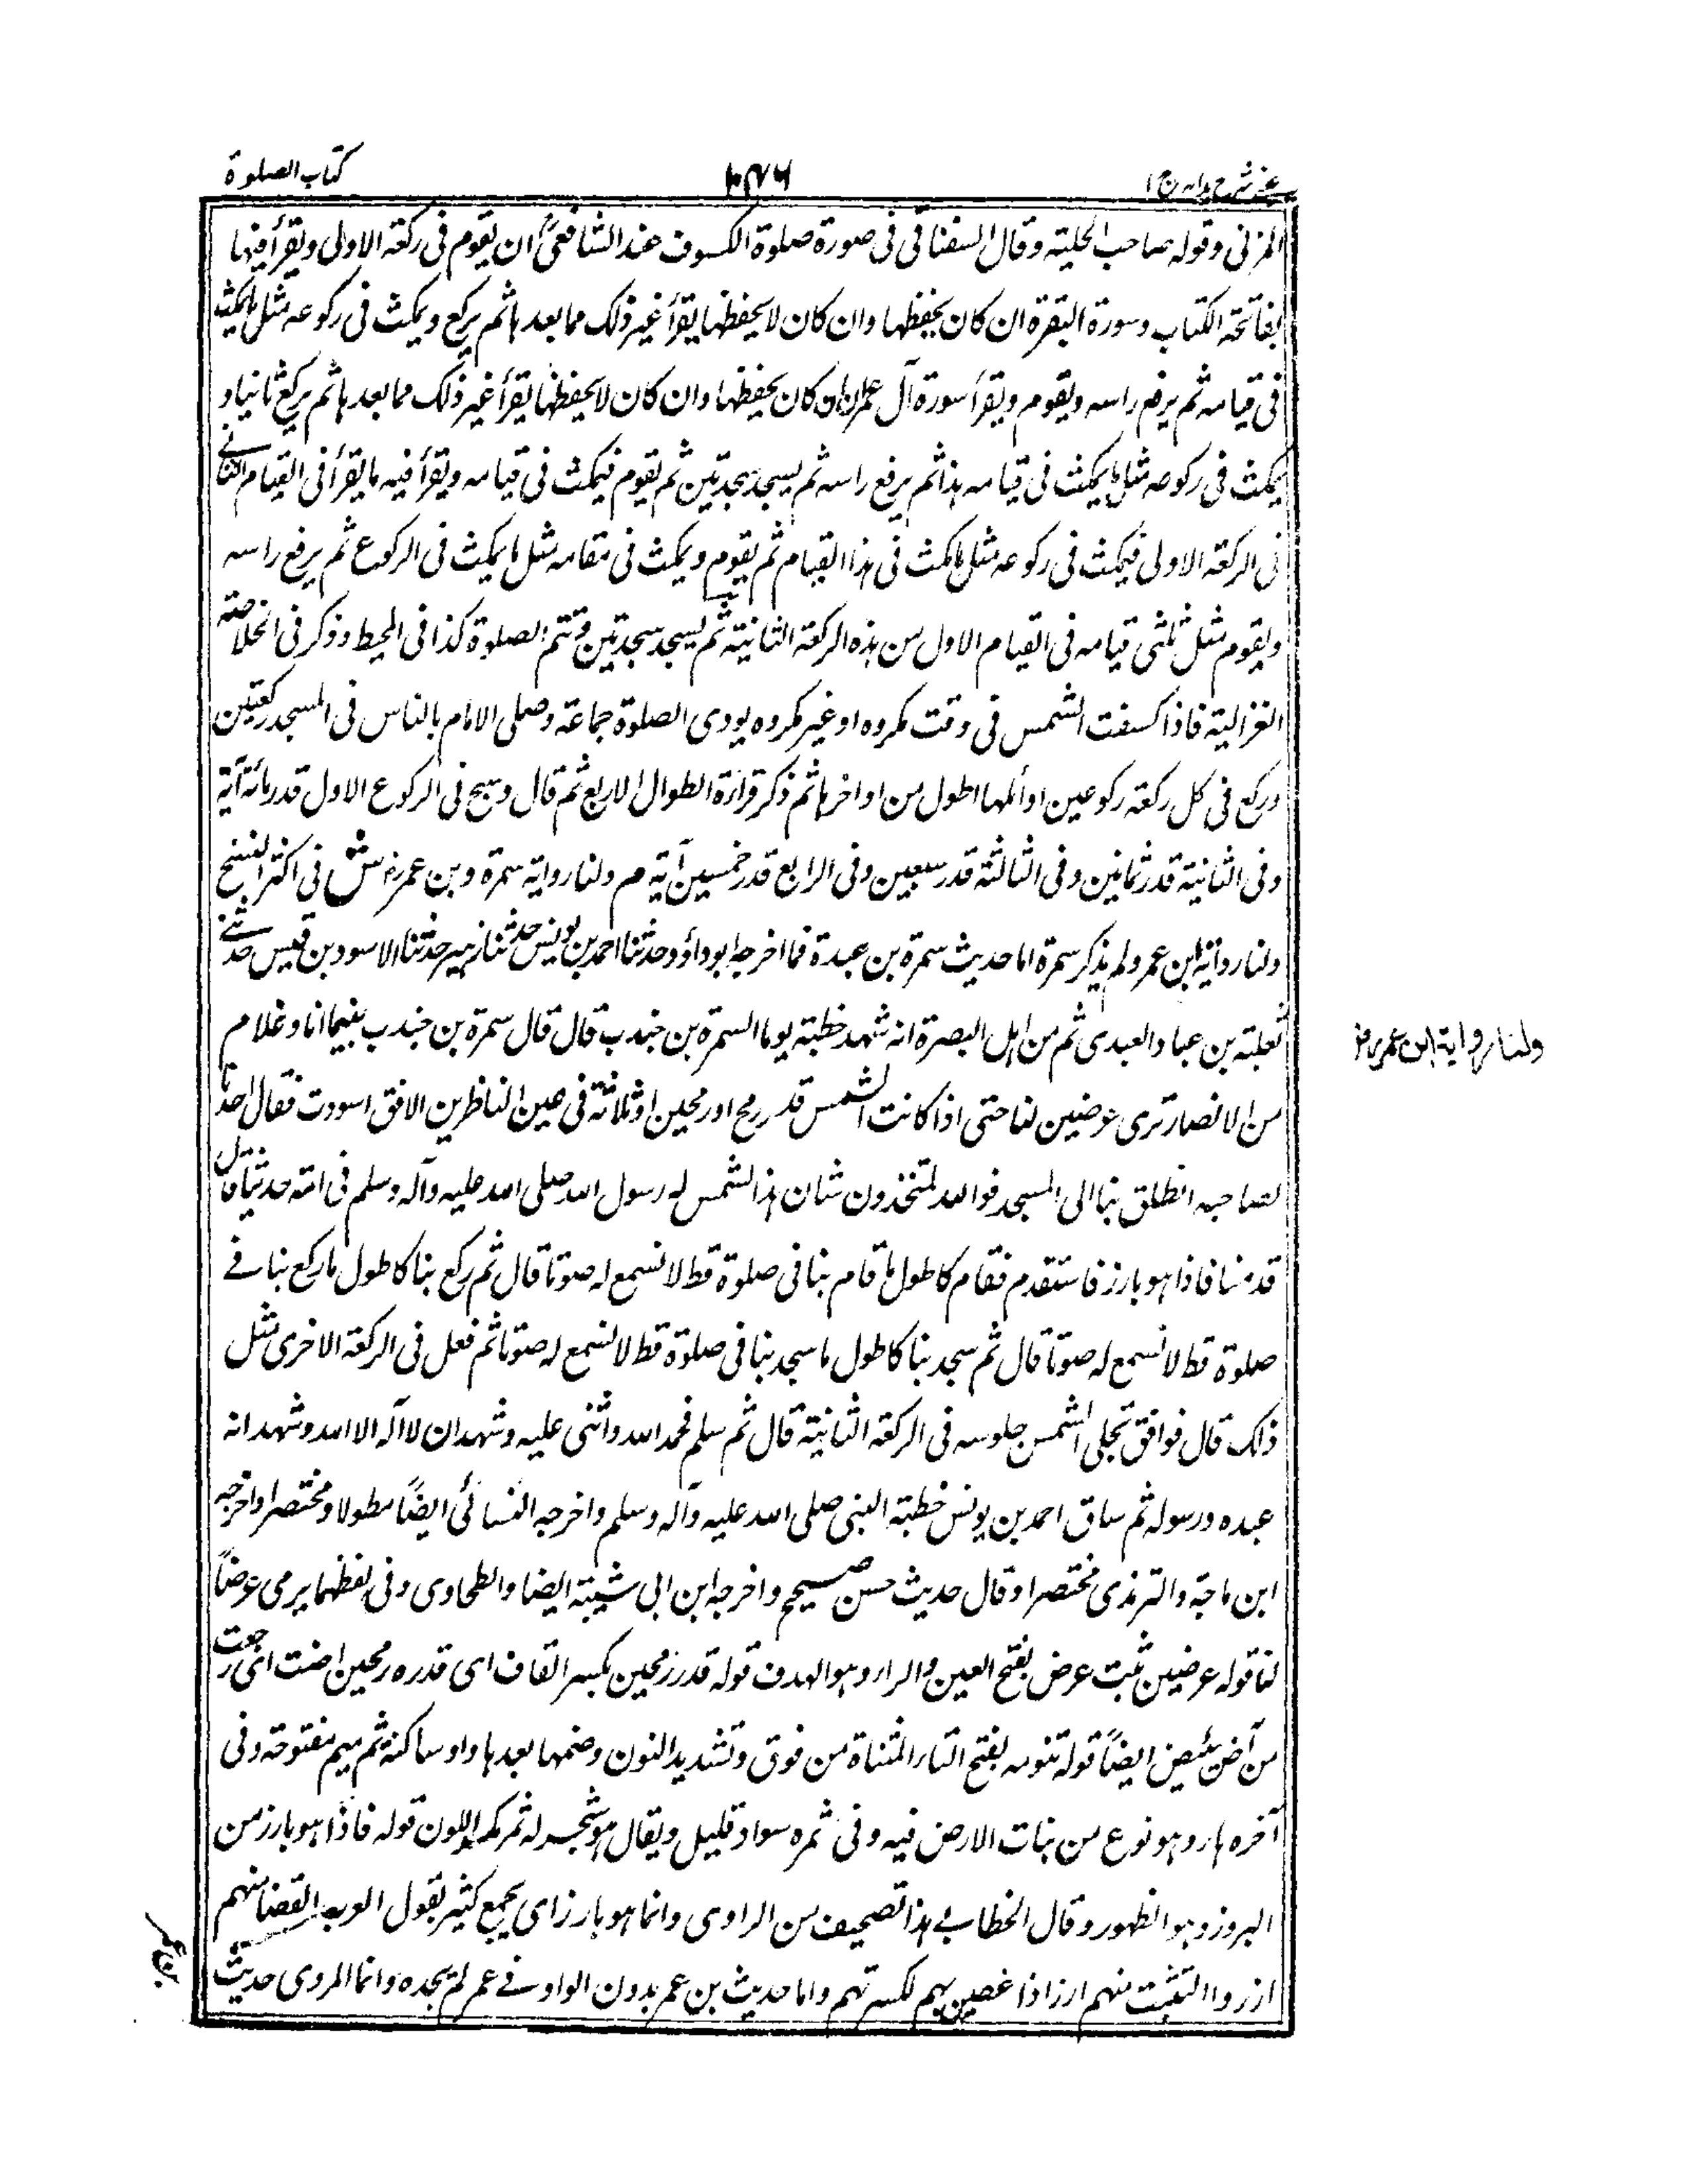 عینی شرح ہدایہ ج ۱
کتاب الصلوة
المزنی وقوله صاحب الحلیته وقال السفناقی فی صورة صلوة الکسوف عند الشافعی ان یقوم فی رکعته الاولی ویقرأ فیها
بفاتحته الکتاب وسورة البقرة ان کان یحفظها وان کان لا یحفظها یقرأ غیر ذلک مما بعدها ثم یرکع ویمکث فی رکوعه مثل ما یمکث
فی قیامه ثم یرفع راسه ویقوم ویقرأ سورة آل عمران ان کان یحفظها وان کان لا یحفظها یقرأ غیر ذلک مما بعدها ثم یرکع ثانیا و
یمکث فی رکوعه مثل ما یمکث فی قیامه هذا ثم یرفع راسه ثم یسجد سجدتین ثم یقوم فیمکث فی قیامه ویقرأ فیه ما یقرأ فی القیام الثانی
فی الرکعته الاولی فیمکث فی رکوعه مثل ما مکث فی هذا القیام ثم یقوم ویمکث فی مقامه مثل ما یمکث فی الرکوع ثم یرفع راسه
ویقوم مثل ثلثی قیامه فی القیام الاول من هذه الرکعة الثانیة ثم یسجد سجدتین وتتم الصلوة کذا فی المحیط وذکر فی الخلاصته
الغزالیة فاذا کسفت الشمس فی وقت مکروه او غیر مکروه یودی الصلوة جماعة وصلی الامام بالناس فی المسجد رکعتین
ورکع فی کل رکعته رکوعین اوائلها اطول من اواخرها ثم ذکر قراءة الطوال الاربع ثم قال وسبح فی الرکوع الاول قدر مائة آیة
وفی الثانیة قدر ثمانین وفی الثالثة قدر سبعین وفی الرابع قدر خمسین آیة م ولنا روایة سمرة وبن عمر رض ش فی اکثر النسخ
ولنا روایة ابن عمر ولم یذکر سمرة اما حدیث سمرة بن عبدة فما اخرجه ابو داؤد حدثنا احمد بن یونس حدثنا زهیر حدثنا الاسود بن قیس حدثنی
ثعلبته بن عباد العبدی ثم من اهل البصرة انه شهد خطبته یوما السمرة بن جندب قال قال سمرة بن جندب بینما انا وغلام
ولنا روایة ابن عمر رض
من الانصار نرمی عرضین لنا حتی اذا کانت الشمس قدر رمح او رمحین او ثلاثة فی عین الناظرین الافق اسودت فقال احدنا
لصاحبه انطلق بنا الی المسجد فوالله لتحدثن شان هذا الشمس له رسول الله صلی الله علیه وآله وسلم فی امته حدثنا قال
قدمنا فاذا هو بارز فاستقدم فقام کاطول ما قام بنا فی صلوة قط لا نسمع له صوتا قال ثم رکع بنا کاطول ما رکع بنا فے
صلوة قط لا نسمع له صوتا قال ثم سجد بنا کاطول ما سجد بنا فی صلوة قط لا نسمع له صوتا ثم فعل فی الرکعة الاخری مثل
ذلک قال فوافق تجلی الشمس جلوسه فی الرکعة الثانیة قال ثم سلم فحمد الله واثنی علیه وشهد ان لا اله الا الله وشهد انه
عبده ورسوله ثم ساق احمد بن یونس خطبة النبی صلی الله علیه وآله وسلم واخرجه النسائی ایضاً مطولا ومختصرا واخرجه
ابن ماجة والترمذی مختصرا وقال حدیث حسن صحیح واخرجه ابن ابی شیبة ایضا والطحاوی وفی لفظهما یرمی عرضاً
لنا قوله عرضین ثبت عرض بفتح العین والراء وهو الهدف قوله قدر رمحین بکسر القاف ای قدره رمحین اضت ای رجعت
من آض یئیض ایضاً قوله تنومه بفتح التاء المثناة من فوق وتشدید النون وضمها بعدها واو ساکنة ثم میم مفتوحة وفی
آخره هاء وهو نوع من بنات الارض فیه وفی ثمره سواد قلیل ویقال هو شجر له ثمر کمد اللون قوله فاذا هو بارز من
البروز وهو الظهور وقال الخطابی هذا تصحیف من الراوی وانما هو بارز ای بجمع کثیر یقول العرب القضا منهم
ازر والتثبت منهم ارز اذا غصین بهم لکسرتهم واما حدیث بن عمر بدون الواو فے عمر لم نجده وانما المروی حدیث